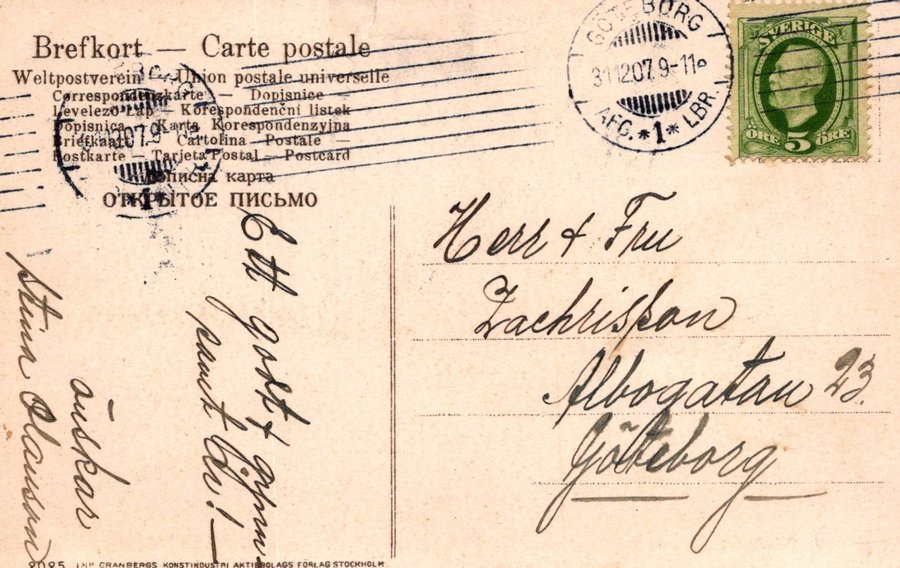 Brefkort — Carte postale
Weltpostverein — Union postale universelle
Correspondenzkarte — Dopisnice —
Levelező-Lap — Korespondenční listek
Dopisnica — Karta Korespondenzyjna
Briefkaart — Cartolina Postale —
Postkarte — Tarjeta Postal — Postcard
ОТКРЫТОЕ ПИСЬМО
GÖTEBORG
31 12 07. 9-11 e
AFG. *1* LBR.
SVERIGE
ÖRE 5 ÖRE
Herr & Fru
Zachrisson
Albogatan 23.
Göteborg
Ett godt
samt
önskar
Stina Olausson
IMP GRANBERGS KONSTINDUSTRI AKTIEBOLAGS FÖRLAG STOCKHOLM.